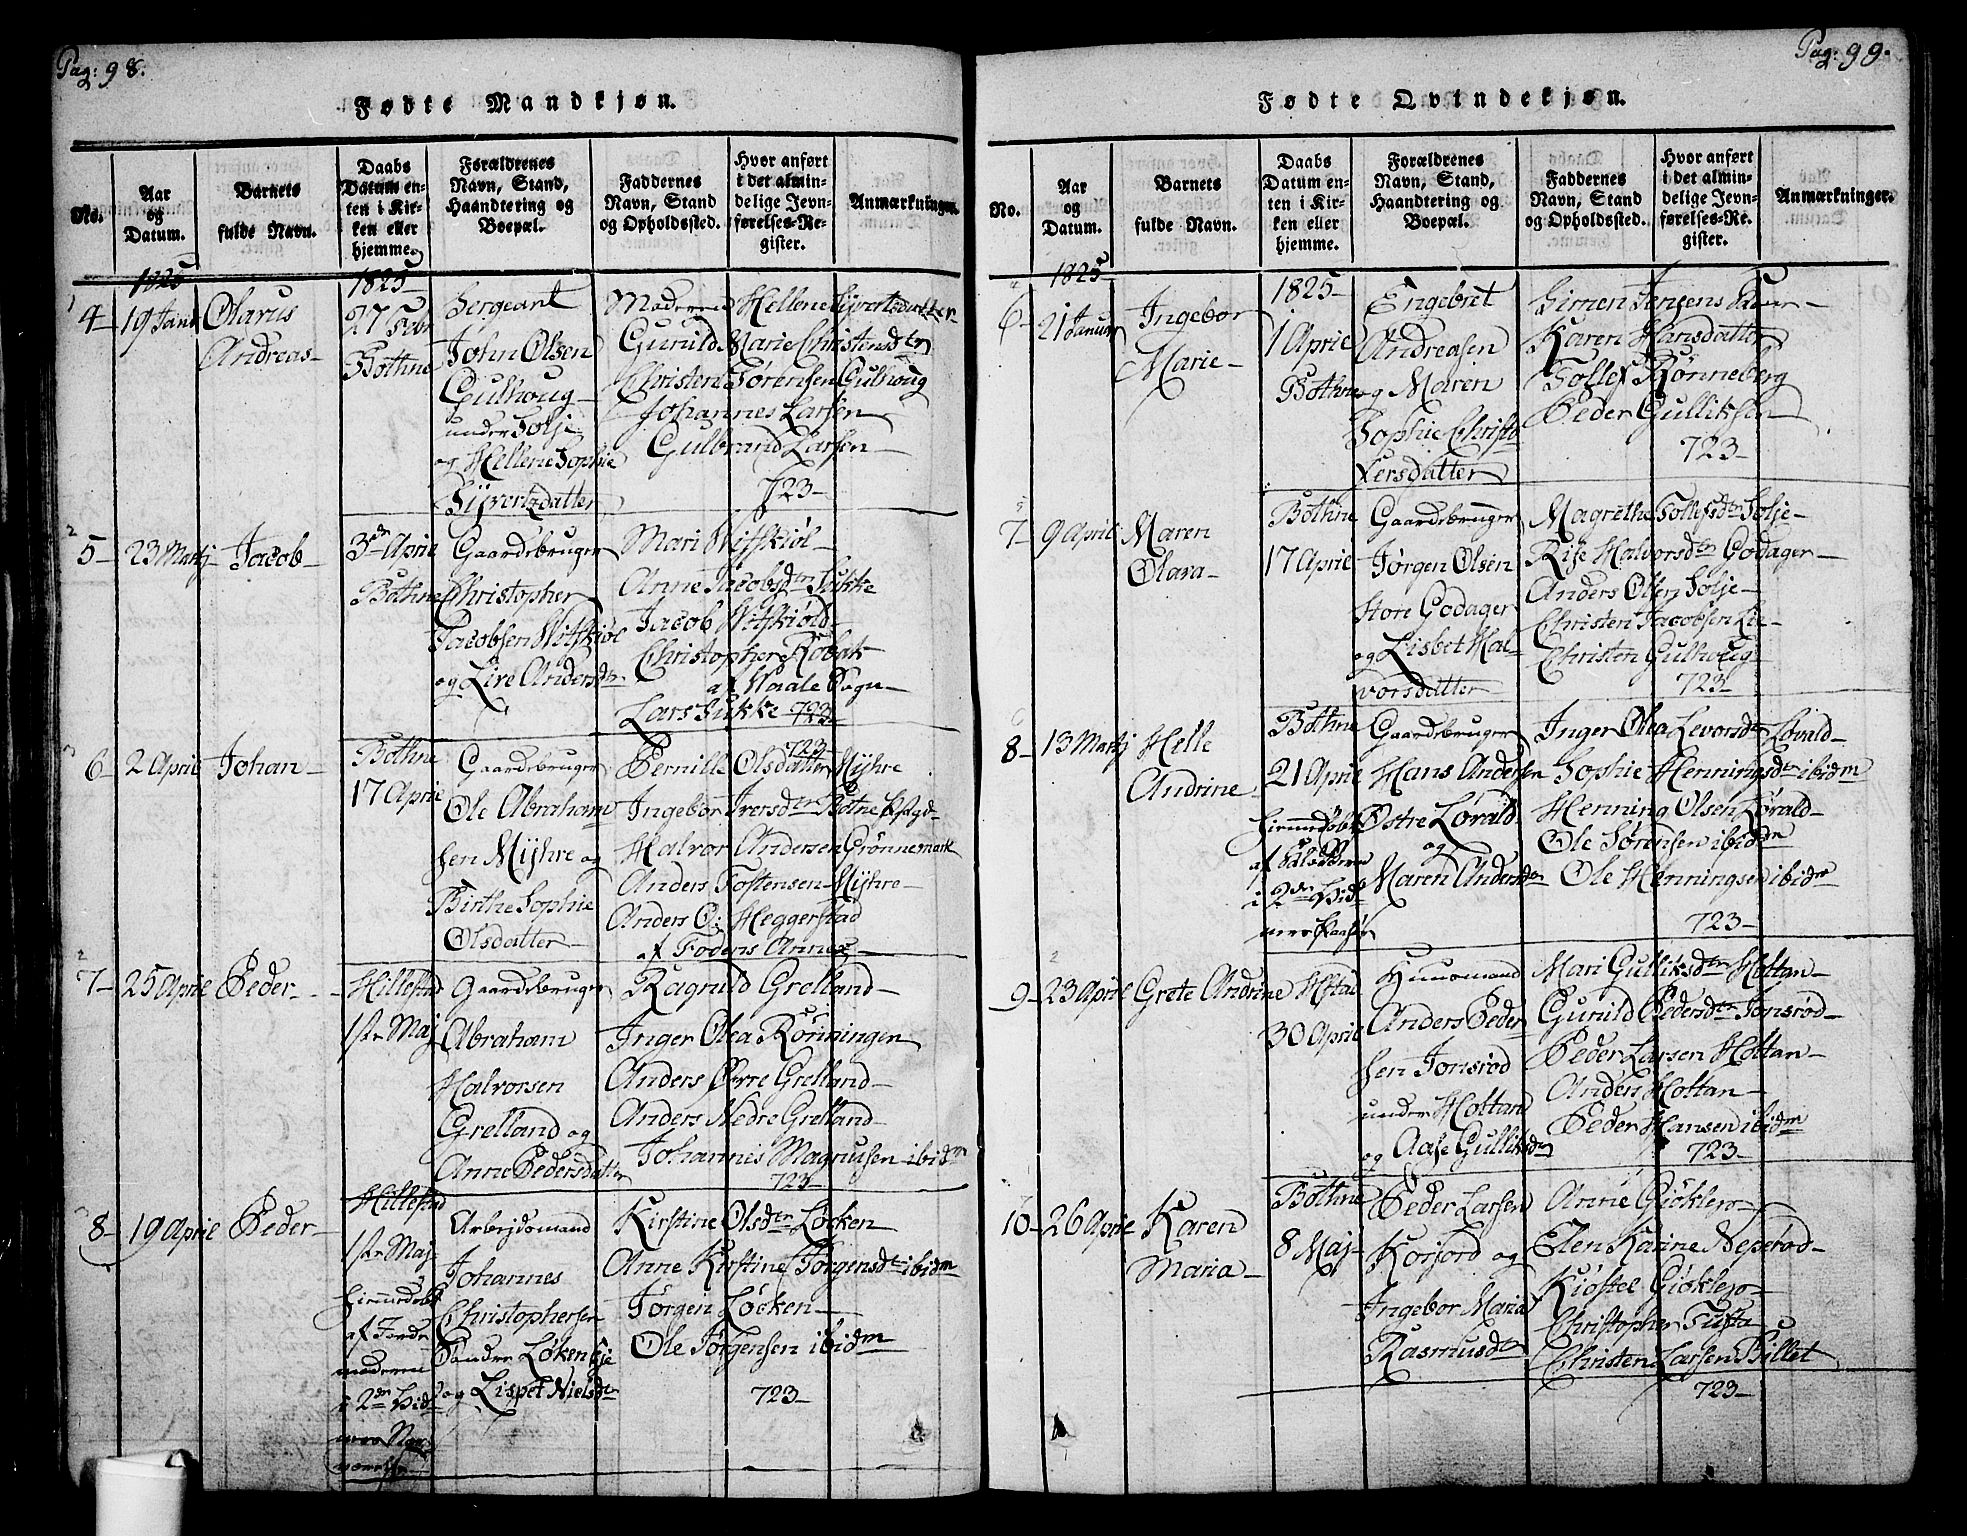 Pag: 98.
Fødte Mandkjøn.
No.
Aar
og
Datum.
Barnets
fulde Navn.
Daabs
Datum en-
ten i Kir-
ken eller
hjemme.
Forældrenes
Navn, Stand,
Haandtering og
Boepæl.
Faddernes
Navn, Stand
og Opholdssted.
Hvor anført
i det almin-
delige Jevn-
førelses-Re-
gister.
Anmærkninger.
1825
4 19 Janu
Olarus
Andreas
1825
27 Febr
Bothne
Sergeant
John Olsen
Gulhoug
under Solje
og Hellene Sophie
Sijvertsdatter
Moderen Hellene Sijvertsdatter
Gunild Marie Christensdtr
Christen Sørensen Gulhoug
Johannes Larsen
Gulbrand Larsen
723
5 23 Martj
Jacob
3die April
Bothne
Gaardebruger
Christopher
Jacobsen Wifskiøl
og Live Andersdtr
Mari Wifskiøl
Anne Jacobsdtr Sukke
Jacob Wifskiøld
Christopher Robak
af Waale Sogn
Lars Sukke 723
6 2 April
Johan
Bothne
17 April
Gaardebruger
Ole Abraham
sen Mijhre og
Birthe Sophie
Olsdatter
723
Pernille Olsdatter Mijhre
Ingebor Iversdtr Botne Præstgd
Halvor Andersen Grønnemark
Anders Tostensen Mijhre
Anders O: Heggerstad
af Fodens Annex
7 25 April
Peder
Hillestad
1ste Maj
Gaardebruger
Abraham
Halvorsen
Grelland og
Anne Pedersdatter
Ragnild Grelland
Inger Olea Rønningen
Anders Øvre Grelland
Anders Nedre Grelland
Johannes Magnusen ibidm
723
8 19 April
Peder
Hillestad
1ste Maj
hiemmedøbt
af Jorde
moderen
i 2de Vid
ners Nær
værelse
Arbejdsmand
Johannes
Christophersen
Løken Eje
og Lispet Nielsdtr
Kirstine Olsdtr Løcken
Anne Kirstine Jørgensdtr ibidm
Jørgen Løcken
Ole Jørgensen ibidm
723
Pag: 99.
Fødte Qvindekjøn.
No.
Aar
og
Datum.
Barnets
fulde Navn.
Daabs
Datum en-
ten i Kir-
ken eller
hjemme.
Forældrenes
Navn, Stand,
Haandtering og
Boepæl.
Faddernes
Navn, Stand
og Opholdssted.
Hvor anført
i det almin-
delige Jevn-
førelses-Re-
gister.
Anmærkninger.
1825
6 21 Januar
Ingebor
Marie
1825
1 April
Bothne
Engebret
Andreasen
og Maren
Sophie Christo
fersdatter
Simen Jensens
Karen Hansdatter
Tollef Rønneberg
Peder Gulliksen
723
7 9 April
Maren
Olava
Bothne
17 April
Gaardebruger
Jørgen Olsen
Store Godager
og Lisbet Hal
vorsdatter
Magrethe Tollefsdtr Solje
Rise Halvorsdtr Godager
Anders Olsen Solje
Christen Jacobsen Lie
Christen Gulhoug
723
8 13 Martj
Helle
Andrine
Bothne
21 April
hiemmedøbt
af
i 2de Vid
ners Paasyn
Gaardebruger
Hans Andersen
Østre Løvald
og
Maren Andersdtr
Inger Olea Levorsdtr Løvald
Sophie Henningsdtr ibidm
Henning Olsen Løvald
Ole Sørensen ibidm
Ole Henningsen ibidm
723
9 23 April
Grete Andrine
Hstad
30 April
Huusmand
Anders Peder
sen Jonsrød
under Hottan
og Aase Gulliksdtr
Mari Gulliksdtr Hottan
Gunild Pedersdtr Jonsrød
Peder Larsen Hottan
Anders Hottan
Peder Hansen ibidm
723
10 26 April
Karen
Maria
Bothne
8 Maj
Peder Larsen
Korsjord og
Ingebor Maria
Rasmusdtr
Anne Giøklep
Elen Karine Neperød
Kiøstel Giøklep
Christopher Tufta
Christen Larsen Billet
723